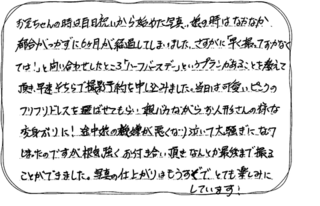 お兄ちゃんの時は百日祝いから始めた写真。娘の時はなかなか
都合がつかずに6ヶ月が経過してしまいました。さすがに「早く撮っておかなく
ては!」と問い合わせしたところ「ハーフバースデー」というプランがあることを教えて
頂き、早速そちらで撮影予約を申し込みました。当日は可愛いピンクの
フリフリドレスを選ばせてもらい親ながらお人形さんの様な
変身ぶりに!途中娘の機嫌が悪くなり泣いて大騒ぎになり
ましたのですが根気強くお付き合い頂きなんとか最後まで撮る
ことができました。写真の仕上がりはもうすぐで とても楽しみに
しています!